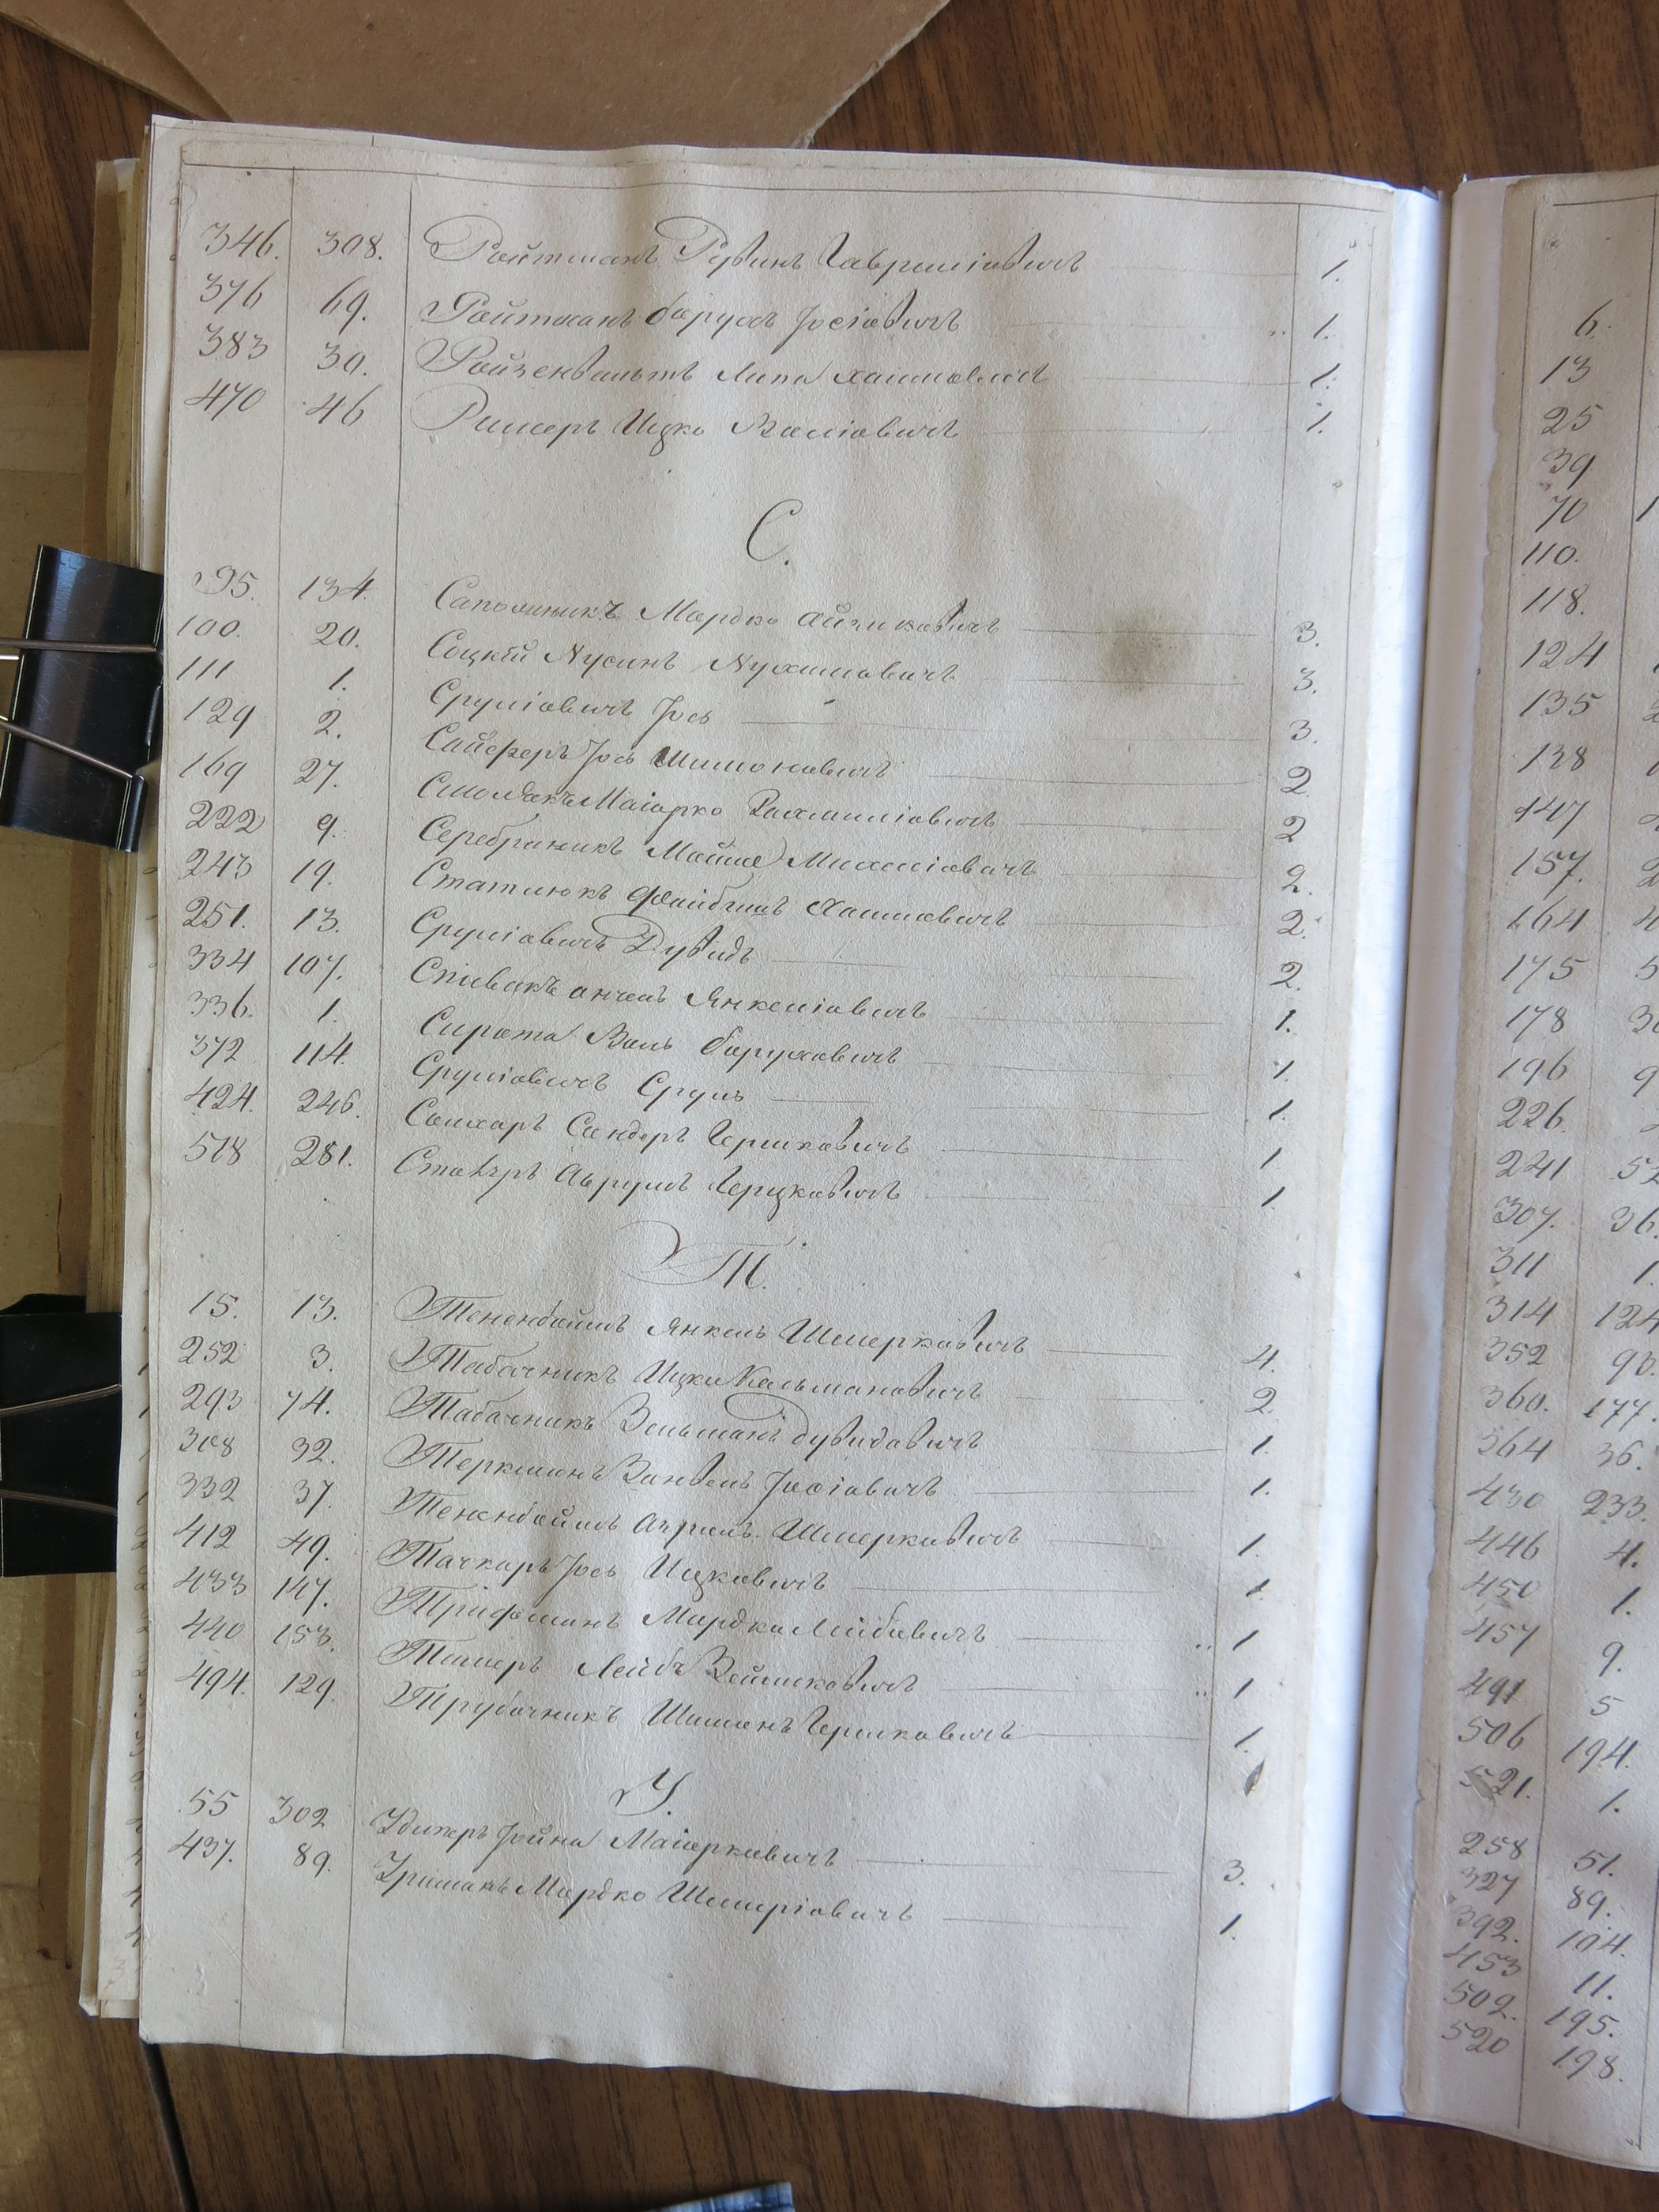 346. 308. Ройтманъ Рувинъ Гавриліовичъ 1.
376 69. Ройтманъ Барухъ Іосіовичъ 1.
383 30. Ройзенвальтъ Липа Хаимовичъ 1.
470 46 Ришеръ Ицко Волліовичъ 1.
С.
95. 134. Сапожникъ Мордко Айзиковичъ 3.
100. 20. Соцкій Нусинъ Нухимовичъ 3.
111 1. Сруліовичъ Іось 3.
129 2. Сайферъ Іось Шимоновичъ 2
169 27. Маіорко Рахмиліовичъ 2
222 9. Серебраникъ Мойше Михеліовичъ 2.
243 19. Статлюкъ Файбишъ Хаимовичъ 2.
251. 13. Сруліовичъ Дувидъ 2.
334 107. Спивакъ Анчель Янкеліовичъ 1.
336. 1. Сирота Воль Боруховичъ 1.
372 114. Сруліовичъ Сруль 1.
424. 246. Сандеръ Гершковичъ 1
518 281. Столеръ Аврумъ Герцковичъ 1
Т.
15. 13. Тененбоймъ Янкель Шмерковичъ 4.
252 3. Табачникъ Ицко Кальмановичъ 2
293 74. Табачникъ Зельманъ Дувидовичъ 1.
308 32. Теркманъ Занвель Іосіовичъ 1.
332 37. Тененбоймъ Азриль Шмерковичъ 1.
412 49. Точкарь Іось Ицковичъ 1.
433 147. Трифманъ Мордко Лейбовичъ 1
440 153. Тишеръ Лейбъ Зейликовичъ 1
494. 129. Трубочникъ Шимонъ Гершковичъ 1.
У.
55 302 Іойна Маіорковичъ 3.
437. 89. Урманъ Мордко Шмиріовичъ 1.
6.
13
25
39
70 1
110.
118.
124
135 2
138
147
157. 2
164
175 5
178
196 9
226.
241 52
307. 36.
311 1.
314 124
352 93.
360. 177.
364 36.
430 233.
446 4.
450 1.
457 9.
491 5
506 194.
521. 1.
258 51.
327 89.
392. 104.
453 11.
502. 195.
520 198.